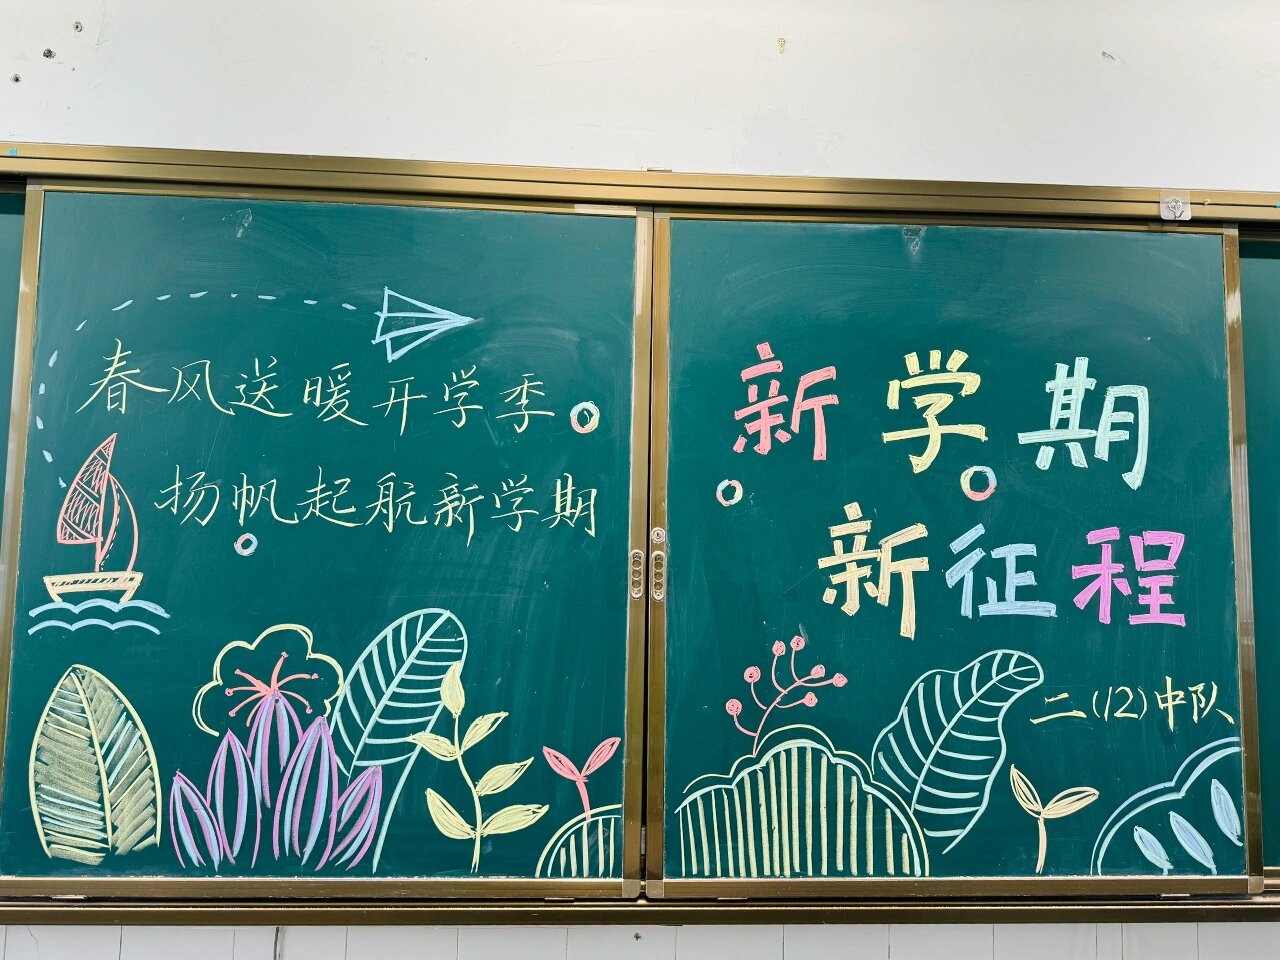 春风送暖开学季
扬帆起航新学期
新学期
新征程
二(12)中队